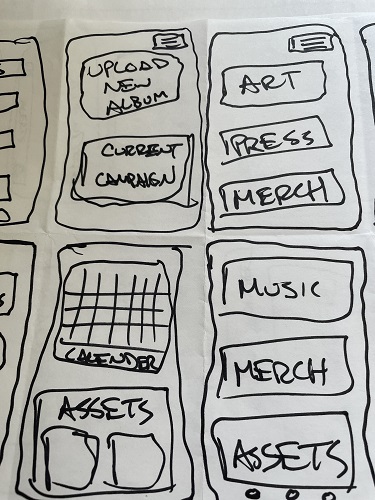 UPLOAD
NEW
ALBUM
CURRENT
CAMPAIGN
ART
PRESS
MERCH
CALENDER
ASSETS
MUSIC
MERCH
ASSETS